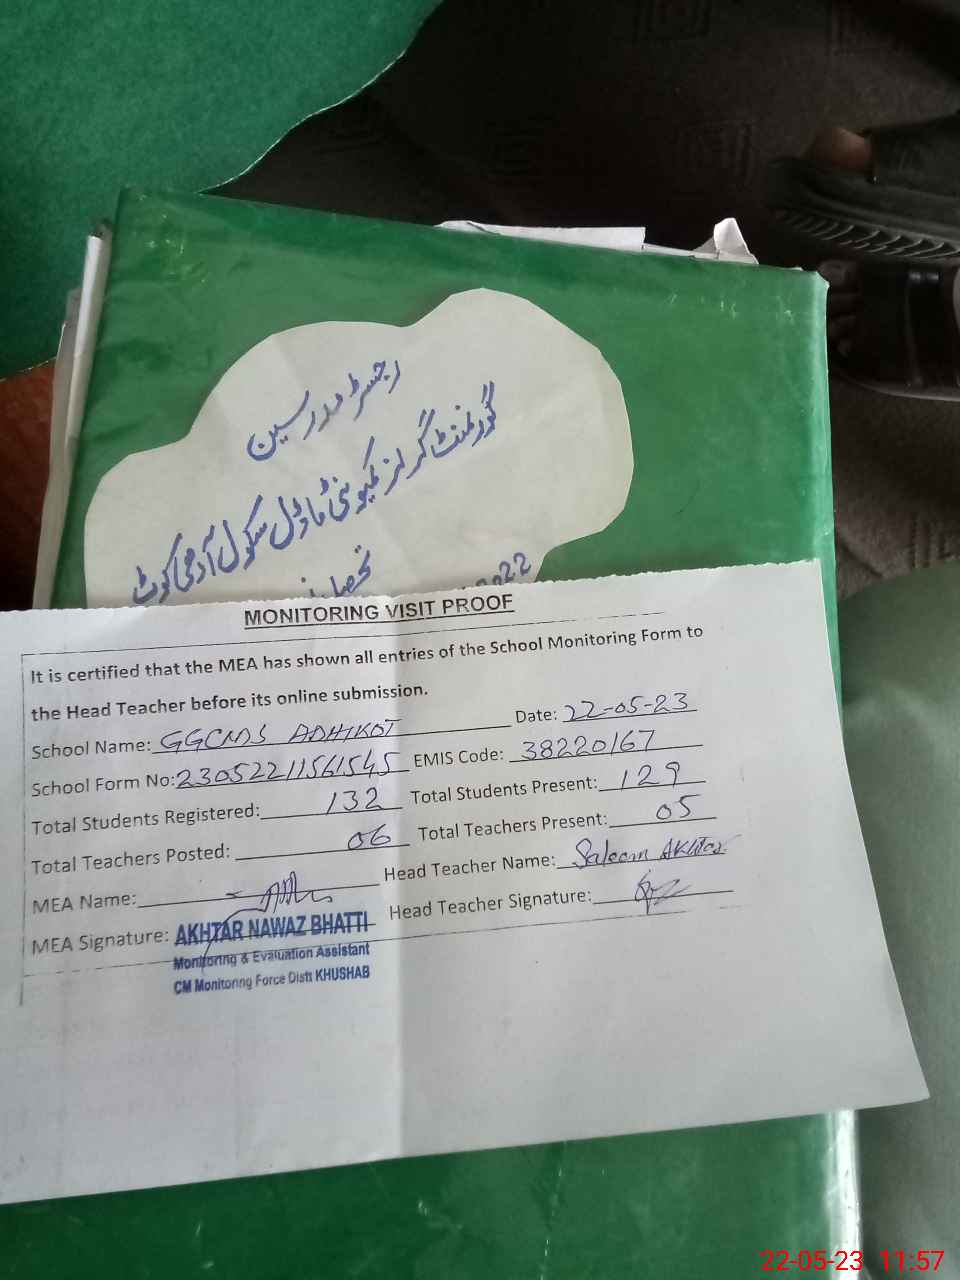 رجسٹر مدرسین
گورنمنٹ گرلز کمیونٹی ماڈل سکول آدھی کوٹ
2022
MONITORING VISIT PROOF
It is certified that the MEA has shown all entries of the School Monitoring Form to
the Head Teacher before its online submission.
School Name: GGCMS ADHIKOT Date: 22-05-23
School Form No: 23052211561545 EMIS Code: 38220167
Total Students Registered: 132 Total Students Present: 129
Total Teachers Posted: 06 Total Teachers Present: 05
MEA Name: Head Teacher Name: Saleem Akhtar
MEA Signature: Head Teacher Signature:
AKHTAR NAWAZ BHATTI
Monitoring & Evaluation Assistant
CM Monitoring Force Distt KHUSHAB
22-05-23 11:57